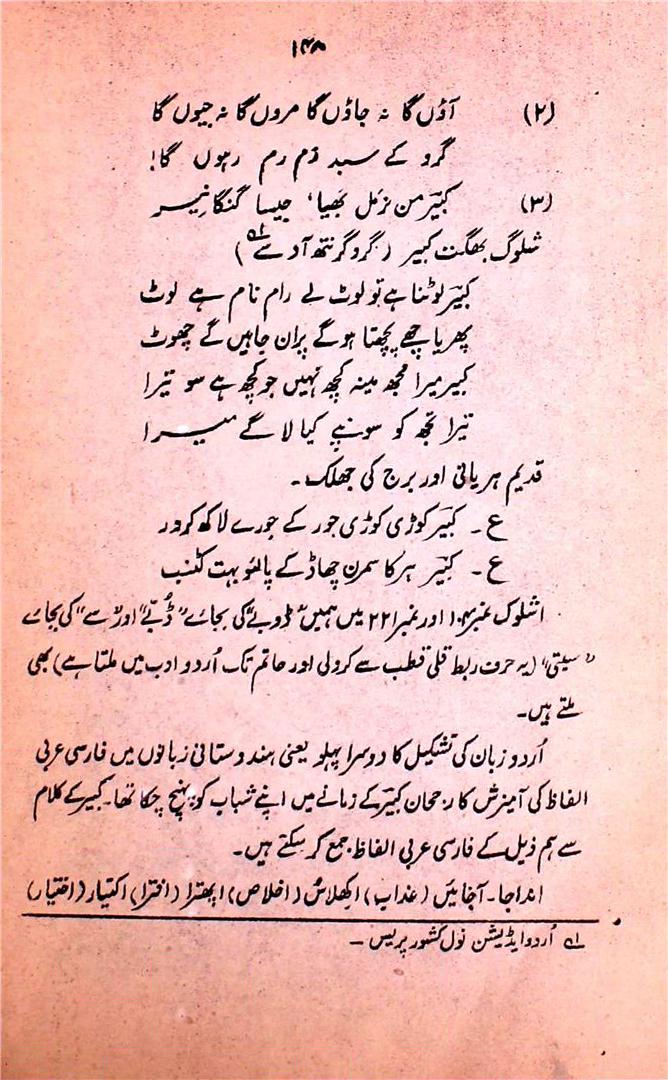 ۱۴۸
(۲) آؤں گا نہ جاؤں گا مروں گا نہ جیوں گا
گرو کے سبد رَم رم رہوں گا!
(۳) کبیر من نِرمَل بھَیا، جیسا گنگا نیر
شلوک بھگت کبیر (گروگرنتھ آد سے ؎۱)
کبیر لوٹنا ہے تو لوٹ لے رام نام ہے لوٹ
پھر پاچھے پچھتا ہوگے پران جاہیں گے چھوٹ
کبیر میرا مجھ مینہ کچھ نہیں جو کچھ ہے سو تیرا
تیرا تجھ کو سونپے کیا لاگے میرا
قدیم ہریانی اور برج کی جھلک۔
ع۔ کبیر کوڑی کوڑی جور کے جورے لاکھ کرور
ع۔ کبیر ہر کا سمرن چھاڈ کے پالئو بہت کٹنب
اشلوک نمبر ۱۰۴ اور نمبر ۲۲۱ میں ہمیں "ڈوبے" کی بجائے "ڈُبّے" اور "سے" کی بجائے
"سیتی" (یہ حرف ربط قلی قطب سے کر ولی اور حاتم تک اُردو ادب میں ملتا ہے) بھی
ملتے ہیں۔
اُردو زبان کی تشکیل کا دوسرا پہلو یعنی ہندوستانی زبانوں میں فارسی عربی
الفاظ کی آمیزش کا رجحان کبیر کے زمانے میں اپنے شباب کو پہنچ چکا تھا۔ کبیر کے کلام
سے ہم ذیل کے فارسی عربی الفاظ جمع کر سکتے ہیں۔
انداجا۔ آجائیں (عذاب) اکھلاس (اخلاص) اپھترا (افترا) اکتیار (اختیار)
؎۱ اُردو ایڈیشن نول کشور پریس ۔